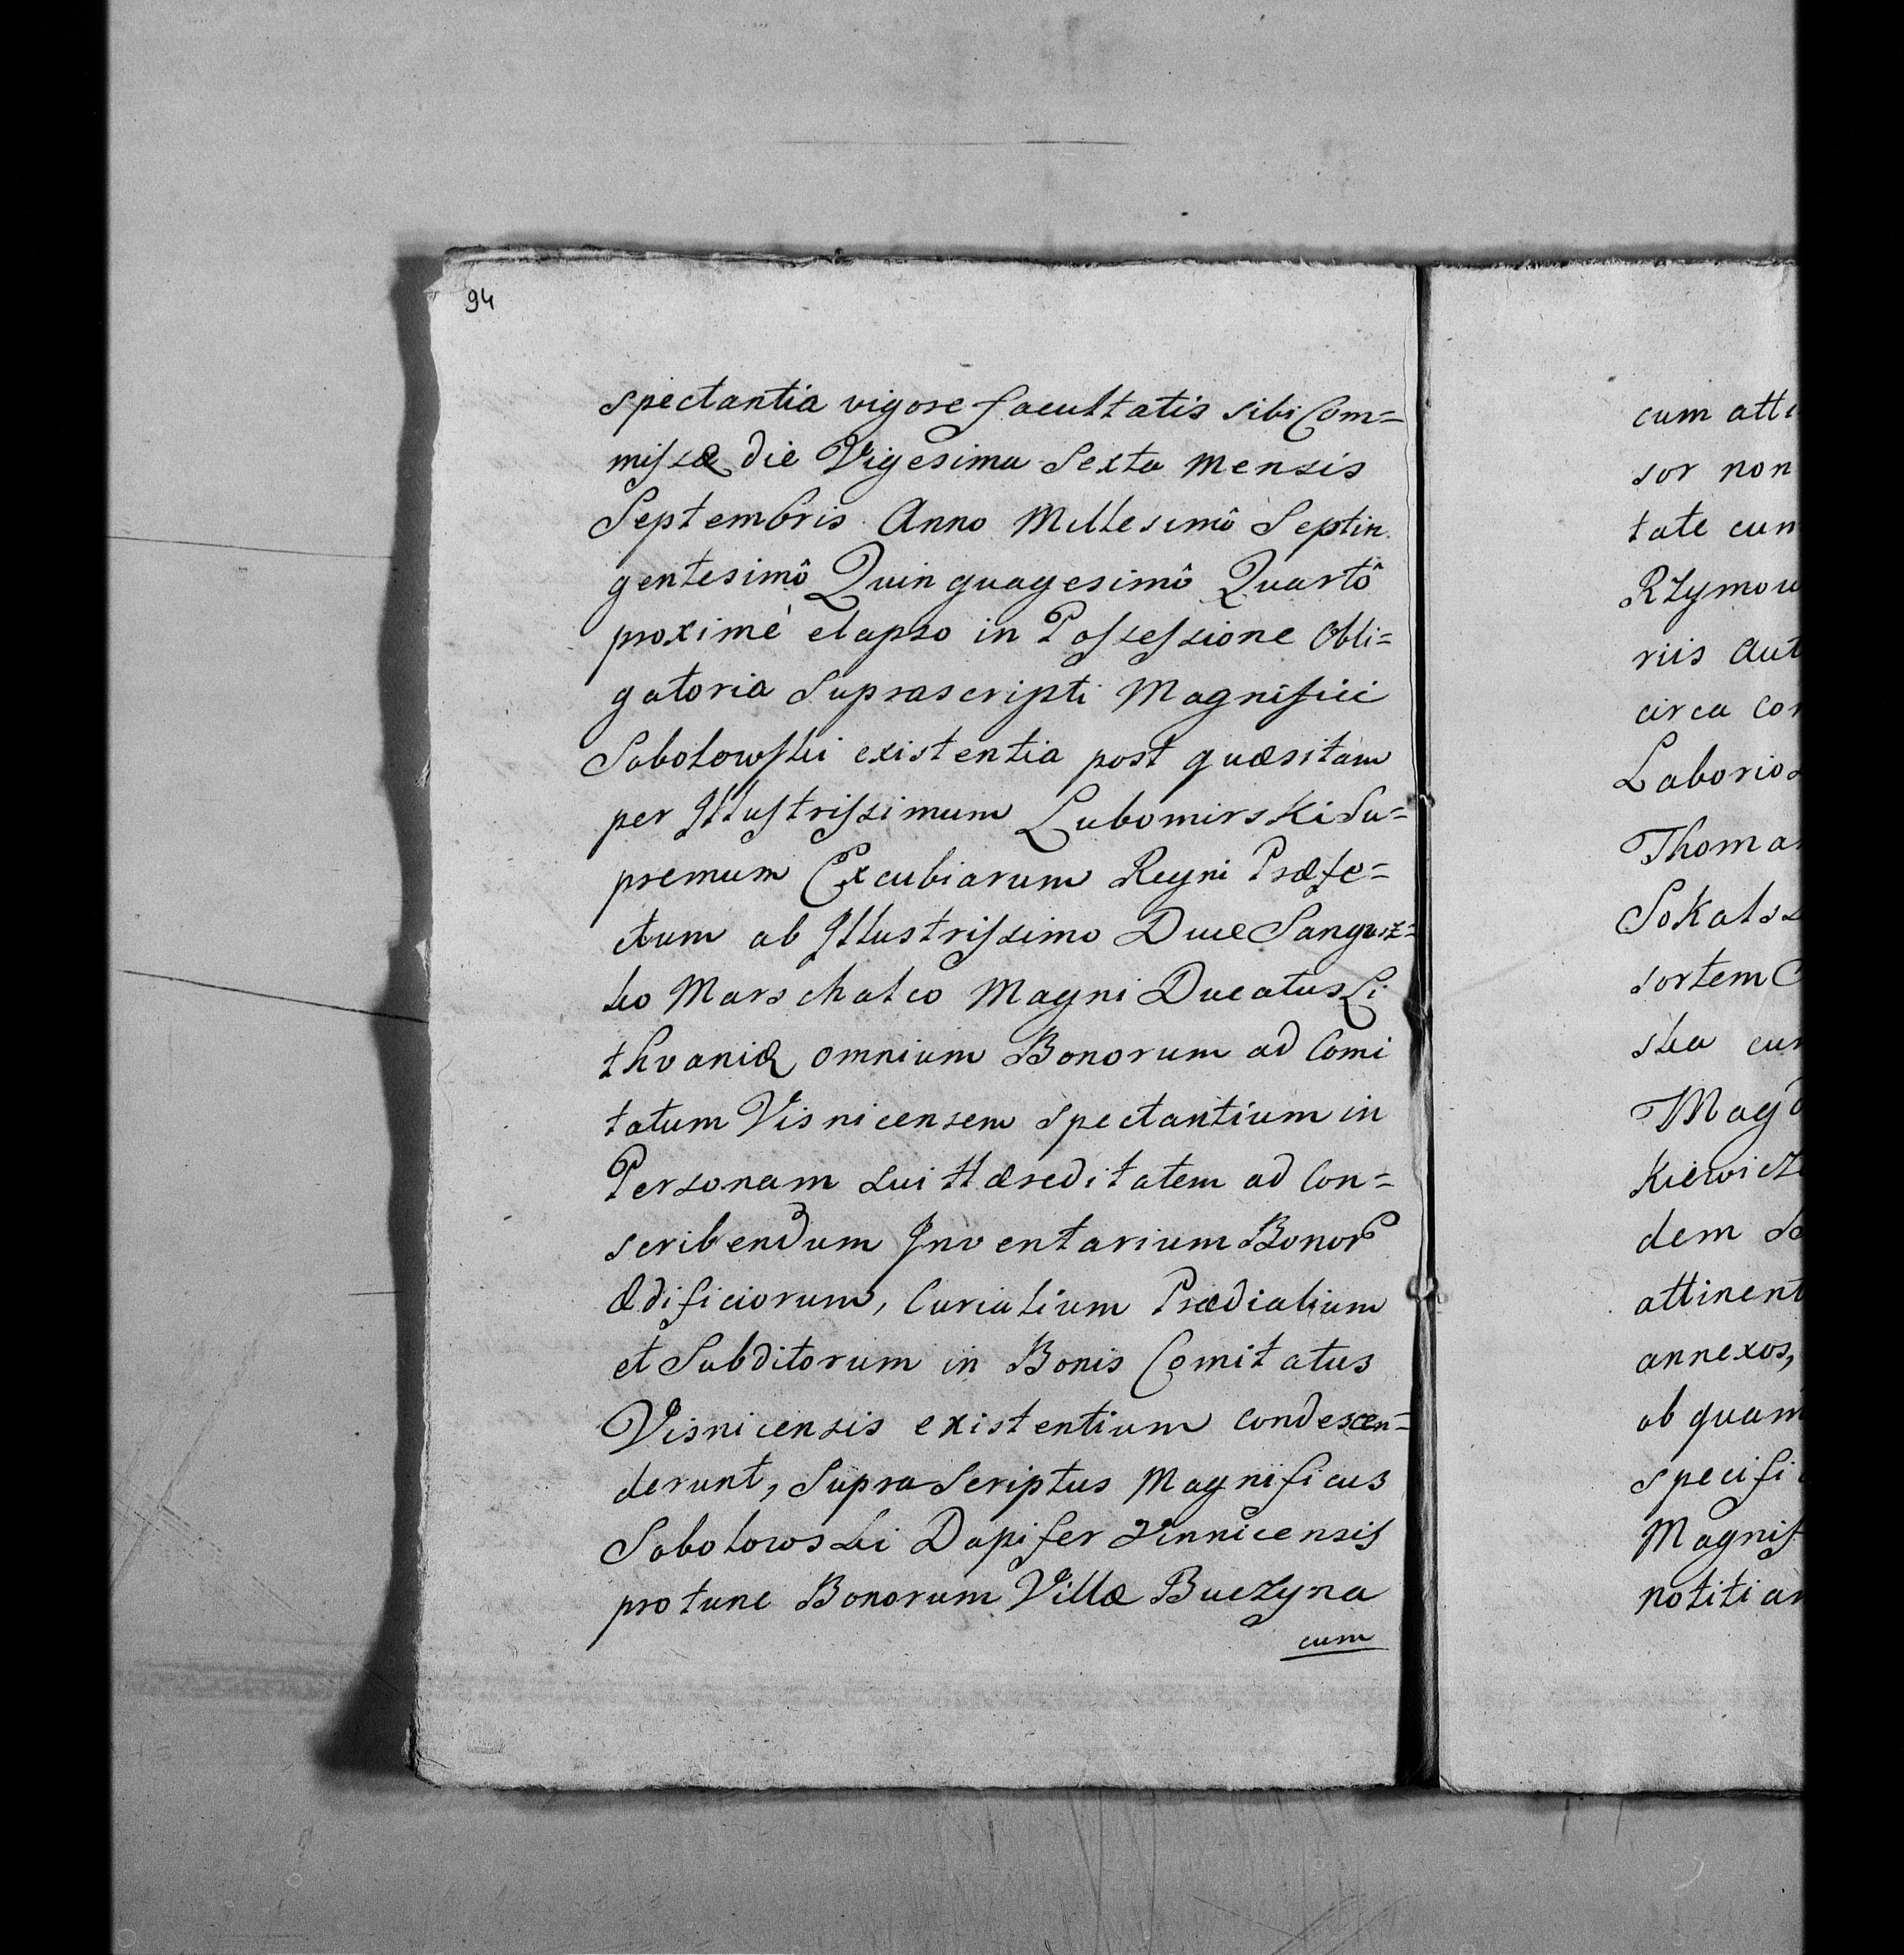 94
spectantia vigore facultatis sibi Com=
missæ die Vigesima Sexta Mensis
Septembris Anno Millesimô Septin
gentesimô Quinquagesimô Quartô
proximè elapso in Possessione Obli=
gatoria Suprascripti Magnifici
Sobolowski existentia post quæsitam
per Illustrissimum Lubomirski Su=
premum Excubiarum Regni Præfe=
ctum ab Illustrissimo Duce Sangusz=
ko Marschalco Magni Ducatus Li
thvaniæ omnium Bonorum ad Comi
tatum Visnicensem spectantium in
Personam sui Hæreditatem ad Con=
scribendum Inventarium Bonor
Ædificiorum, Curialium Prædialium
et Subditorum in Bonis Comitatus
Visnicensis existentium condescen=
derunt, Supra Scriptus Magnificus
Sobolowski Dapifer Vinnicensis
protunc Bonorum Villæ Buczyna
cum
cum
sor non
tate
riis
circa
Laborio
Sokals
sortem
ska
dem
annexos,
ab quam